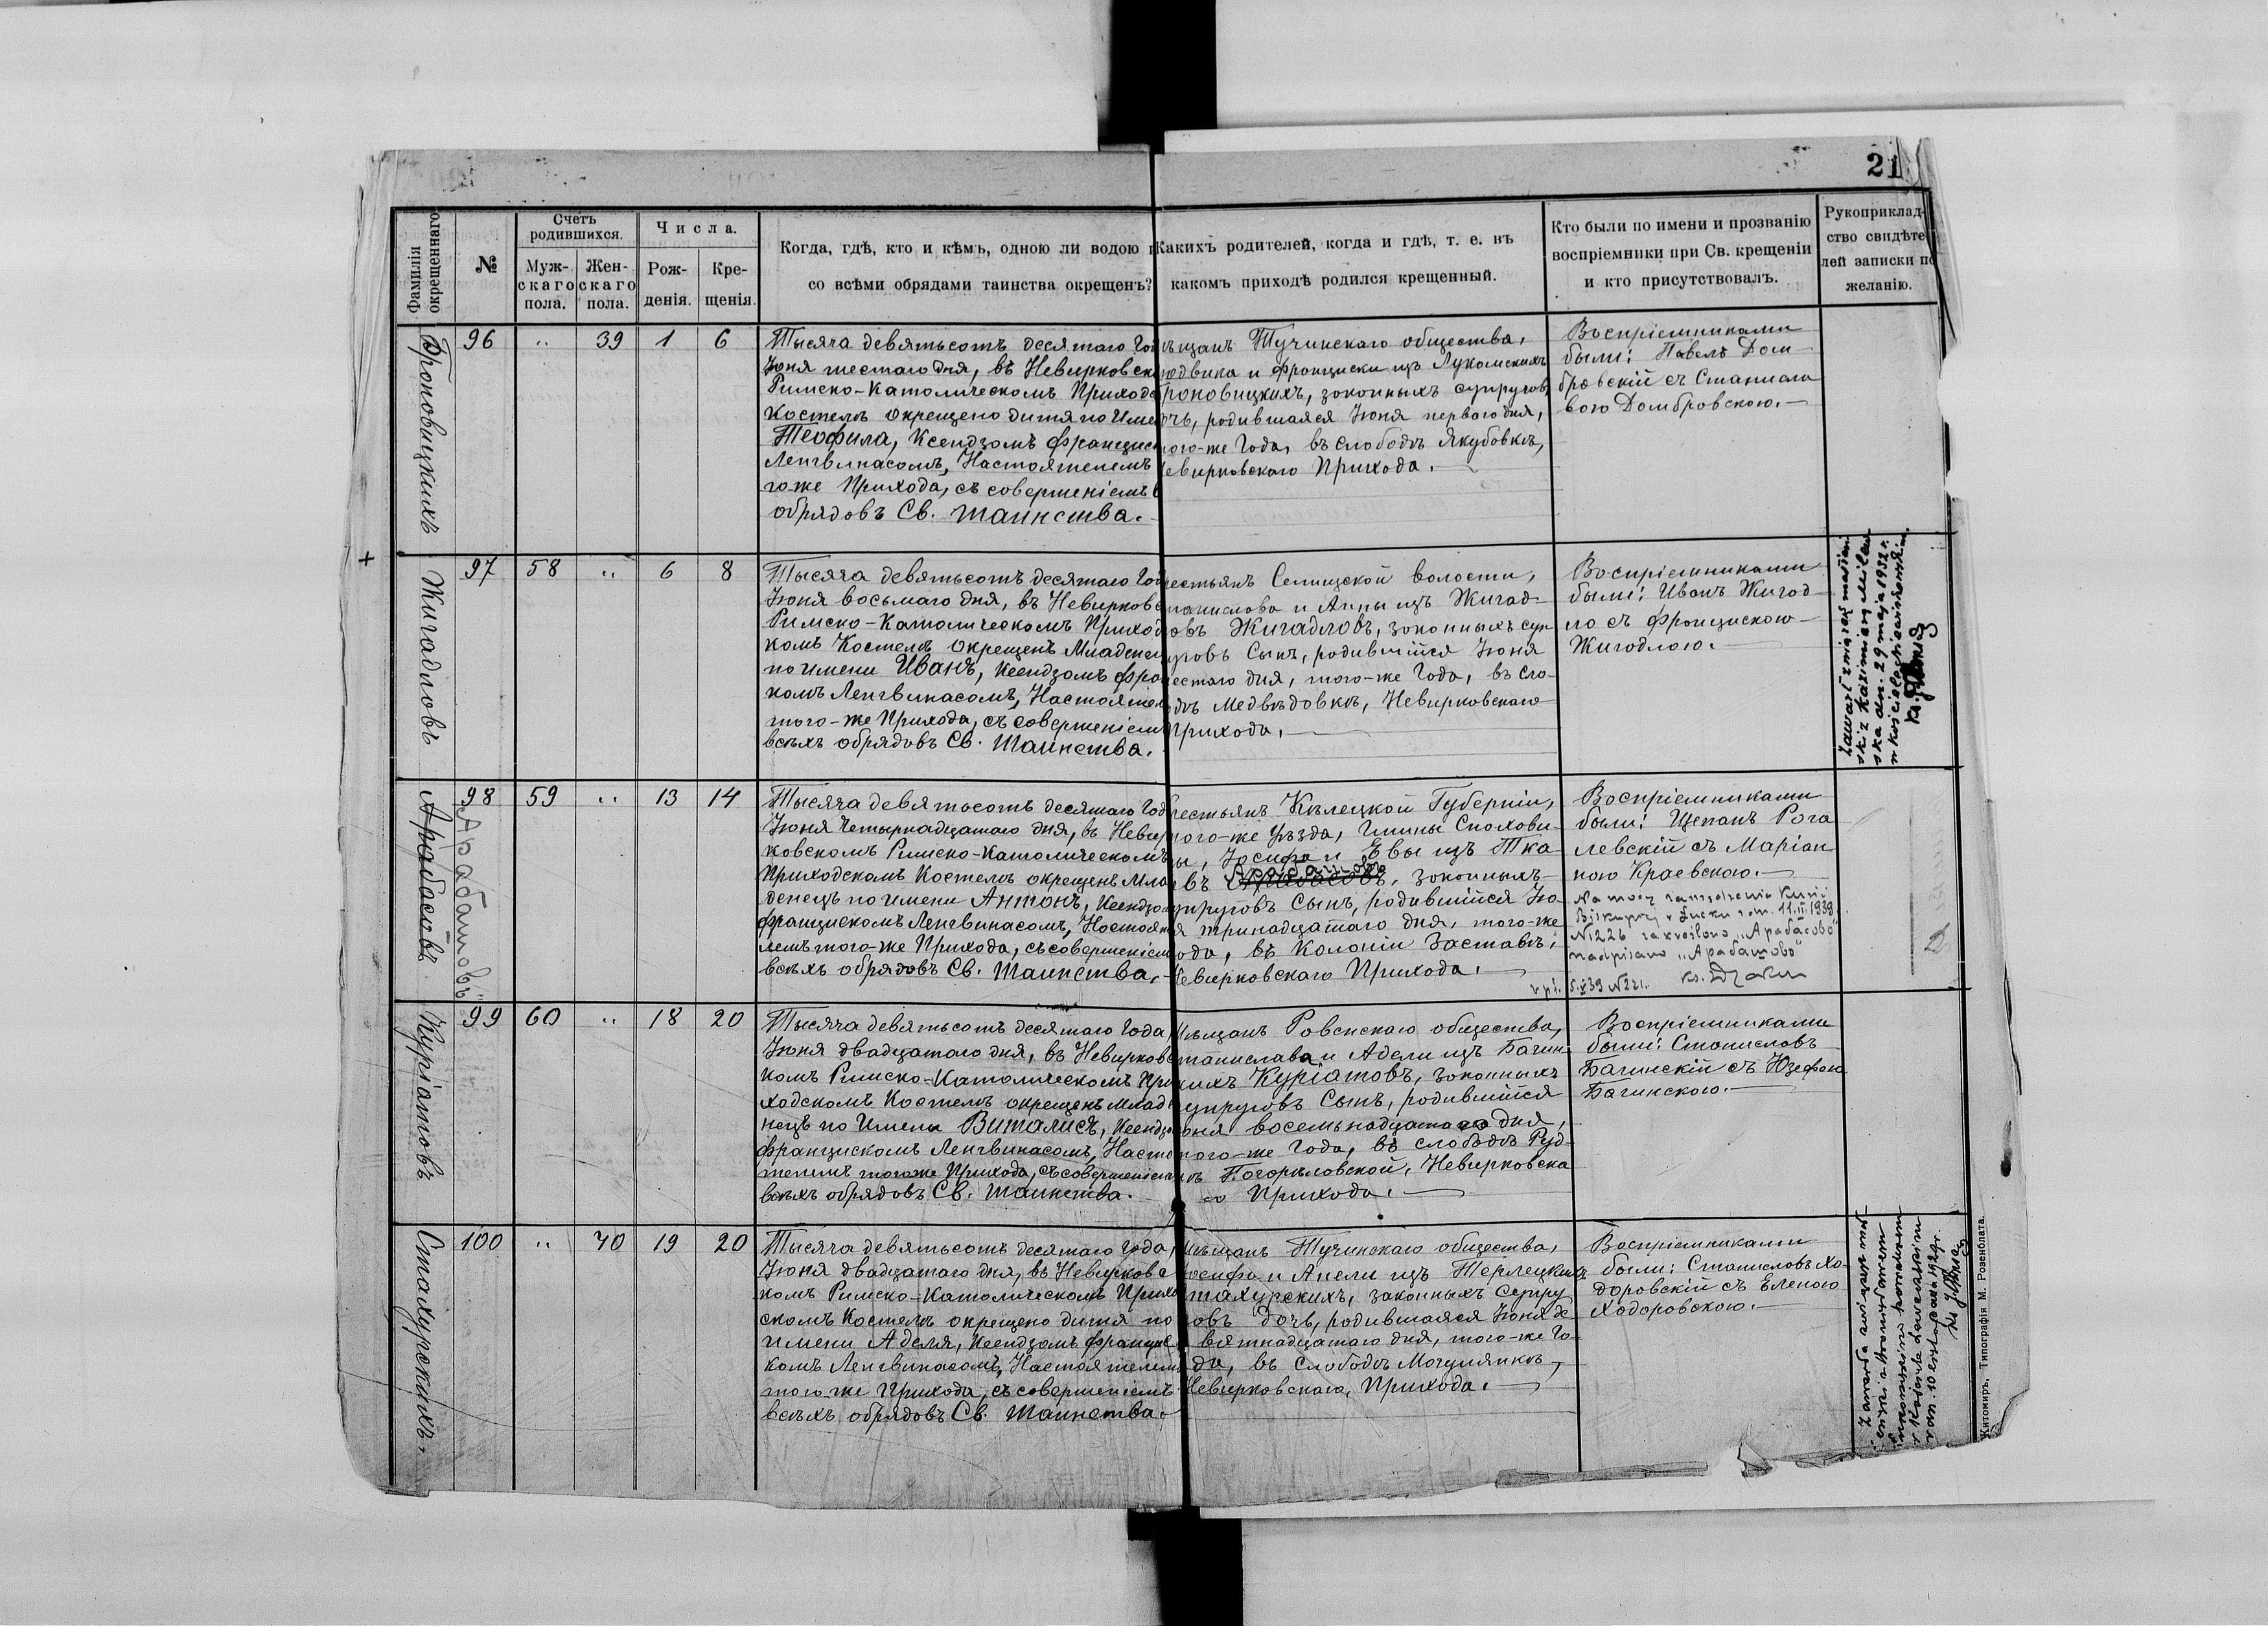 21
Фамилiи окрещеннаго
№
Счетъ родившихся.
Муж-
скаго
пола.
Жен-
скаго
пола.
Числа.
Рож-
денiя.
Кре-
щенiя.
Когда, гдѣ, кто и кѣмъ, одною ли водою
со всѣми обрядами таинства окрещенъ?
Какихъ родителей, когда и гдѣ, т. е. въ
какомъ приходѣ родился крещенный.
Кто были по имени и прозванію
воспріемники при Св. крещеніи
и кто присутствовалъ.
Рукоприклад-
ство свидѣте-
лей записки по
желанію.
96 " 39 1 6
Тысяча девятьсотъ десятаго Го
Іюня шестаго дня, въ Невирковск
Римско-Католическомъ Приход
Костелѣ окрещено дитя по Име
Теофила, Ксендзомъ Францис
Ленгвинасомъ, Настоятелемъ
гоже Прихода, съ совершеніемъ
обрядовъ Св. Таинства.
ѣщанъ Тучинскаго общества,
юдвика и Франциски изъ Лукомскихъ
роковицкихъ, законныхъ супруговъ
очь, родившаяся Іюня перваго дня,
ого-же Года, въ слободѣ Якубовкѣ,
евирковскаго Прихода.
Воспріемниками
были: Павелъ Дом-
бровскій съ Станисла
вою Домбровскою.
+
Жигадловъ
97 58 " 6 8
Тысяча девятьсотъ десятаго Го
Іюня восьмаго дня, въ Невирков
Римско-Католическомъ Приход
комъ Костелѣ окрещенъ Младен
по имени Иванъ, Ксендзомъ Фра
комъ Ленгвинасомъ, Настояте
того-же Прихода, съ совершеніем
всѣхъ обрядовъ Св. Таинства.
естьянъ Селищской волости,
танислава и Анны изъ Жигад-
овъ Жигадловъ, законныхъ суп
уговъ Сынъ, родившійся Іюня
естаго дня, того-же Года, въ сло-
одѣ Медвѣдовкѣ, Невирковскаго
Прихода.
Воспріемниками
были: Иванъ Жигад-
ло съ Францискою
Жигадлою.
Zawarł związek małżeń
ski z Kazimierą Milew
ską dn. 29 maja 1932 r.
w kościele
Арабасовъ
Арабатовъ
98 59 " 13 14
Тысяча девятьсотъ десятаго Год
Іюня Четырнадцатаго дня, въ Невир
ковскомъ Римско-Католическомъ
Приходскомъ Костелѣ окрещенъ Мла
денецъ по имени Антонъ, Ксендзо
Францискомъ Ленгвинасомъ, Настоя
лемъ того-же Прихода, съ совершеніем
всѣхъ обрядовъ Св. Таинства.
рестьянъ Кѣлецкой Губерніи,
ого-же Уѣзда, Гмины
ы, Іосифа и Евы изъ Тка-
Арабатовъ
въ Арабасовъ, законныхъ
упруговъ Сынъ, родившійся Ію
я тринадцатаго дня, того-же
ода, въ Колоніи Заставѣ,
Невирковскаго Прихода.
Воспріемниками
были: Щепанъ Рога
левскій съ Маріан
ною Краевскою.
Na mocy zarządzenia Kurji
Biskupiej w Łucku z dn. 11.II.1939
N 1226 zakreślono "Арабасовъ"
nadpisano "Арабатовъ"
39 N 221. ks.
Куріатовъ
99 60 " 18 20
Тысяча девятьсотъ десятаго Года
Іюня двадцатаго дня, въ Невирковс
комъ Римско-Католическомъ При
ходскомъ Костелѣ окрещенъ Млад
нецъ по Имени Виталисъ, Ксендзо
Францискомъ Ленгвинасомъ, Насто
телемъ тогоже Прихода, съ совершеніем
всѣхъ обрядовъ Св. Таинства.
Мѣщанъ Ровенскаго общества,
танислава и Адели изъ Багин-
кихъ Куріатовъ, законныхъ
упруговъ Сынъ, родившійся
юня восемьнадцатаго дня,
того-же Года, въ слободѣ Руд-
кѣ Погорѣловской, Невирковска
го Прихода.
Воспріемниками
были: Станиславъ
Багинскій съ Юзефою
Багинскою.
Стахурскихъ
100 " 40 19 20
Тысяча девятьсотъ десятаго Года,
Іюня двадцатаго дня, въ Невирковс
комъ Римско-Католическомъ Прихо
скомъ Костелѣ окрещено дитя по
имени Аделя, Ксендзомъ Францис
комъ Ленгвинасомъ, Настоятелем
того-же Прихода, съ совершеніемъ
всѣхъ обрядовъ Св. Таинства.
Мѣщанъ Тучинскаго общества,
осифа и Анели изъ Терлецкихъ
тахурскихъ, законныхъ Супру
овъ Дочь, родившаяся Іюня де
вятнадцатаго дня, того-же Го
да, въ слободѣ Могулянкѣ,
Невирковскаго, Прихода.
Воспріемниками
были: Станиславъ Хо-
доровскій съ Еленою
Ходоровскою.
Zawarła związek
dn. 10 listopada 1929 r.
Житомиръ, Типографія М. Розенблата.